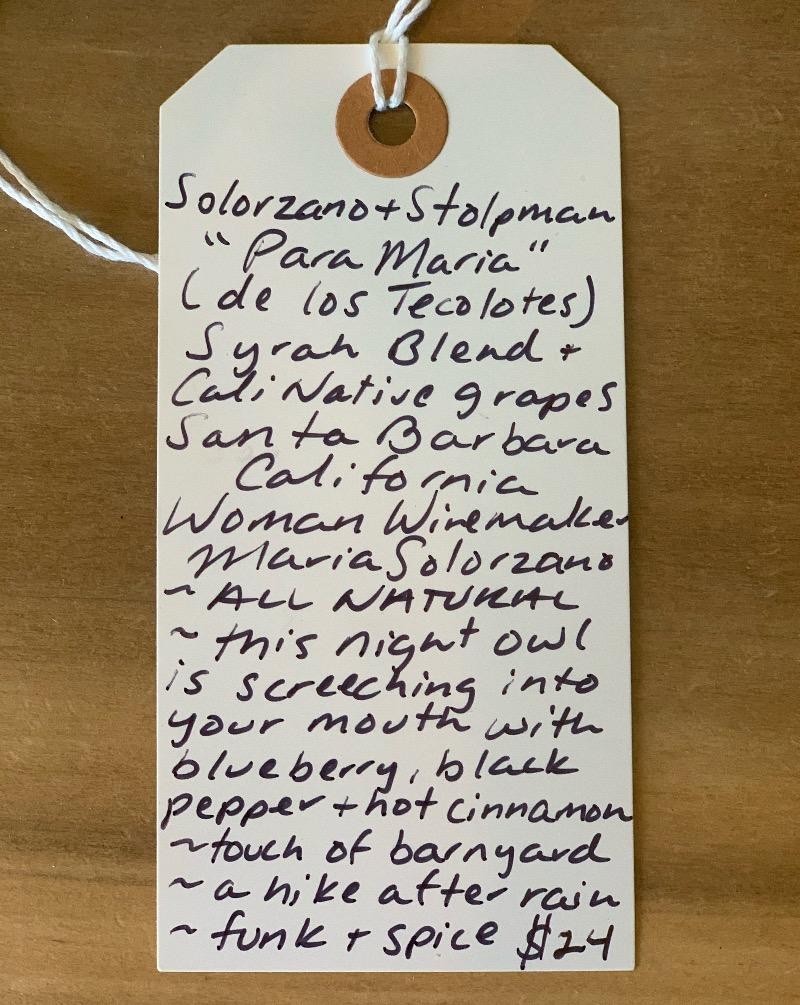 Solorzano + Stolpman
"Para Maria"
(de los Tecolotes)
Syrah Blend +
Cali Native grapes
Santa Barbara
California
Woman Winemaker
Maria Solorzano
~ ALL NATURAL
~ this night owl
is screeching into
your mouth with
blueberry, black
pepper + hot cinnamon
~ touch of barnyard
~ a hike after rain
~ funk + spice $24